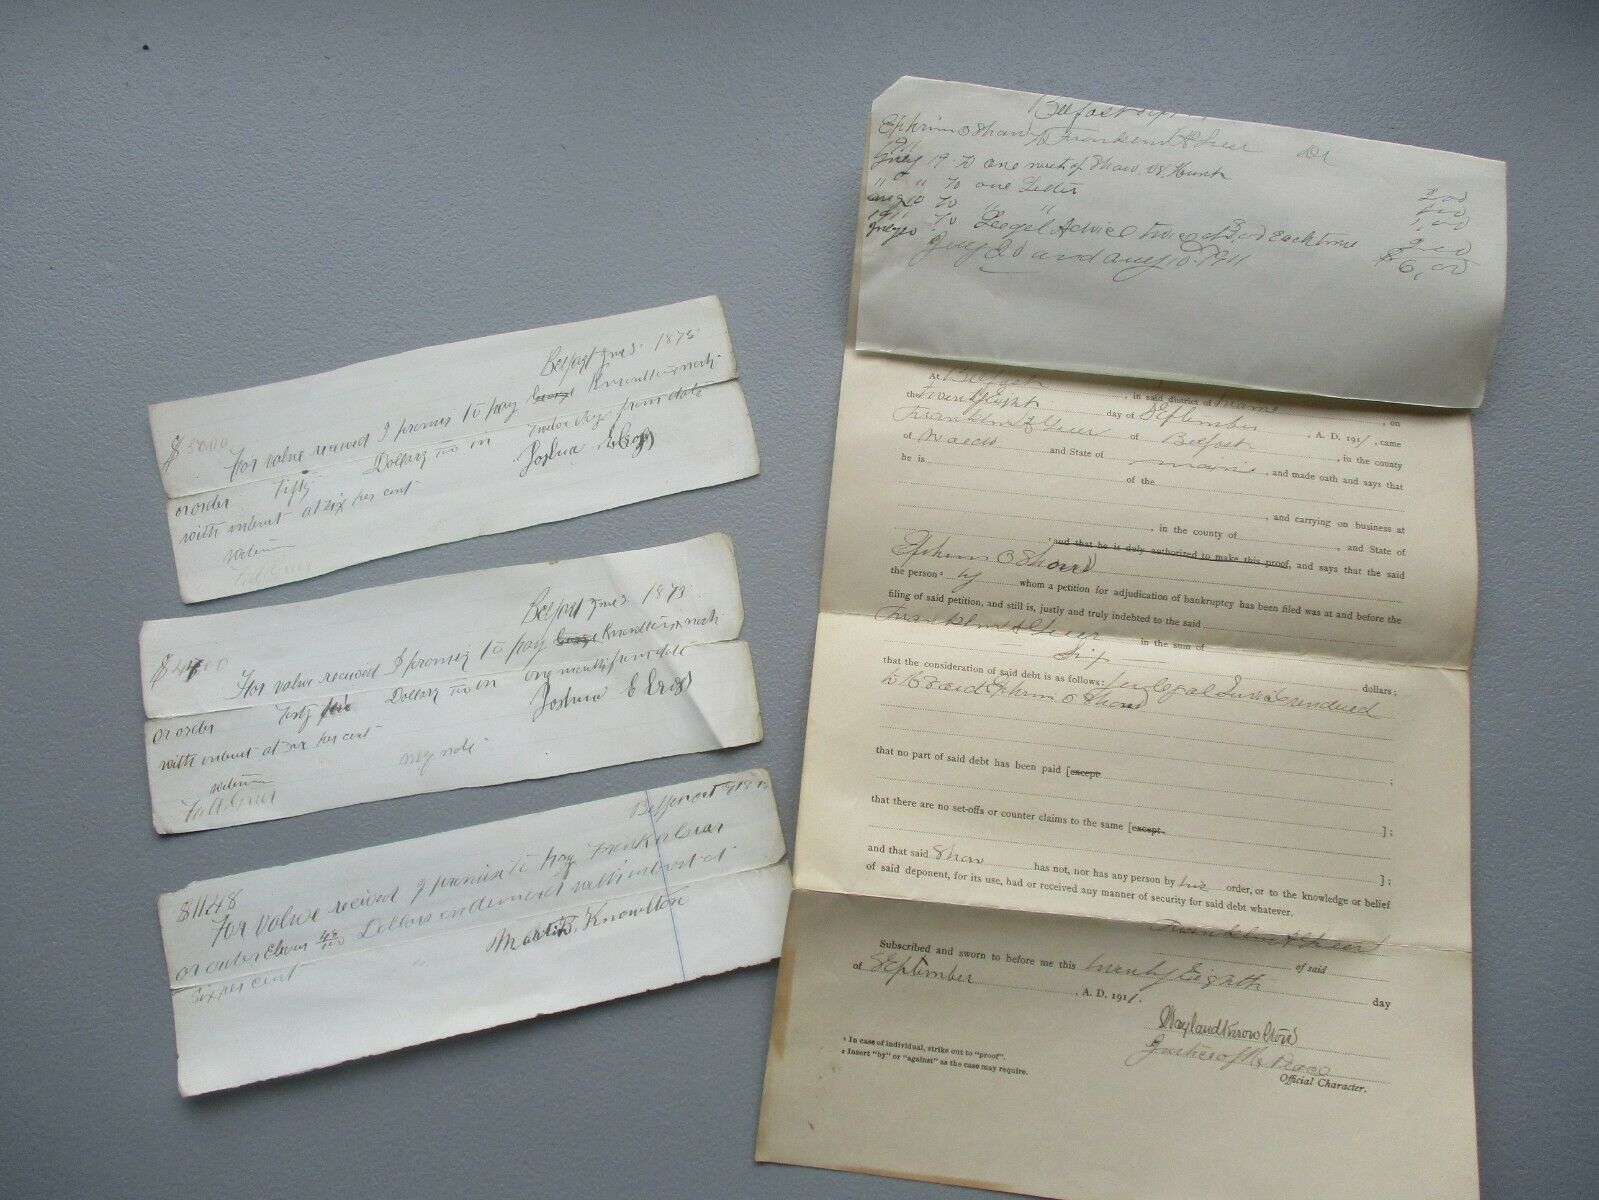 Belfast June 3. 1873
$50.00 For value received I promis to pay George Knowlton
or order Fifty Dollars in from date
with interest at six per cent Joshua E
witness
Belfast June 3. 1873
For value received I promis to pay George Knowlton
or order Forty five Dollars in one month from date
with interest at six per cent Joshua E
witness my note
Greer
$11.48
For value received I promis to pay
or order Eleven 48/100 Dollars on demand with interest at
six per cent Knowlton
Belfast
Ephrim O Shaw to Franklin A Greer Dr
1911
July 19 To one writ of Shaw vs Hunt 2.00
" " To one Letter
Aug 10 To " " 1.00
1911
July 20 To Legel Advice twice at $1.00 Each time 2.00
July 20 and Aug 10. 1911 $6.00
At Belfast , in said district of Maine , on
the Twenty Eight day of September , A. D. 1911, came
Franklin A Greer of Belfast , in the county
of Waldo and State of Maine , and made oath and says that
he is of the
, and carrying on business at
, in the county of , and State of
¹ and that he is duly authorized to make this proof, and says that the said
Ephrim O Shaw
the person ² by whom a petition for adjudication of bankruptcy has been filed was at and before the
filing of said petition, and still is, justly and truly indebted to the said
Franklin A Greer in the sum of
Six dollars;
that the consideration of said debt is as follows: for Legal rendered
to said Ephrim O Shaw
;
that no part of said debt has been paid [except
];
that there are no set-offs or counter claims to the same [except
];
and that said Shaw has not, nor has any person by his order, or to the knowledge or belief
of said deponent, for its use, had or received any manner of security for said debt whatever.
Franklin A Greer
of said
Subscribed and sworn to before me this twenty Eighth day
of September , A. D. 1911.
Wayland Knowlton
Justice of the Peace
Official Character.
¹ In case of individual, strike out to “proof”.
² Insert “by” or “against” as the case may require.